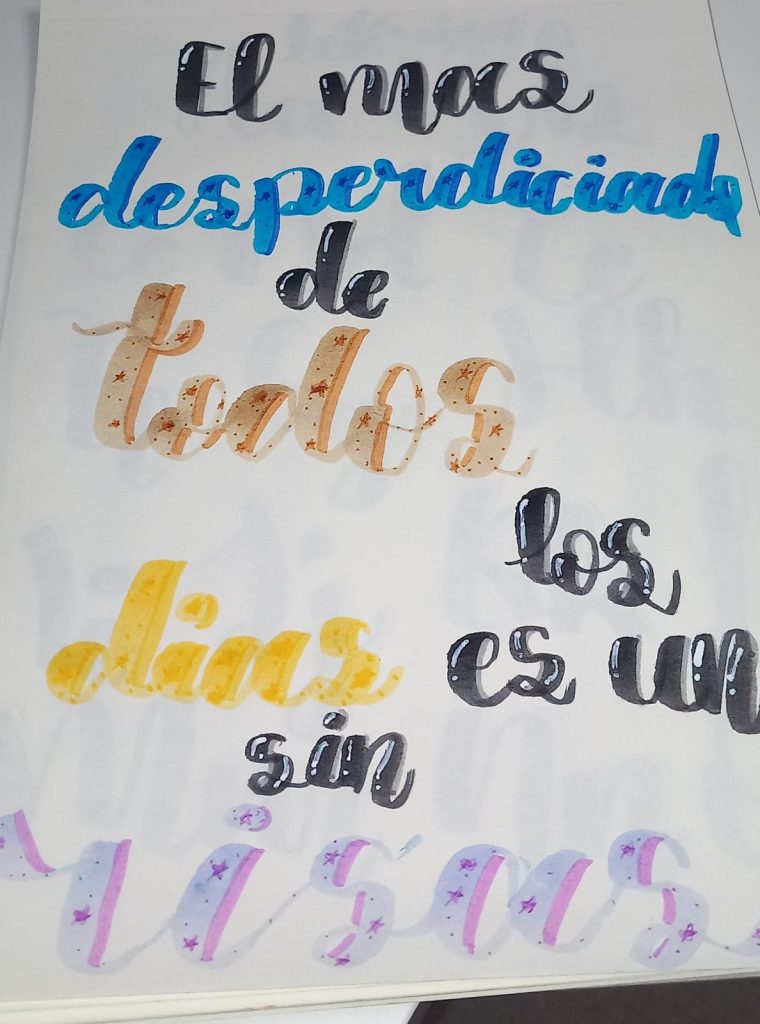 El mas
desperdiciado
de
todos
los
dias es un
sin
risas